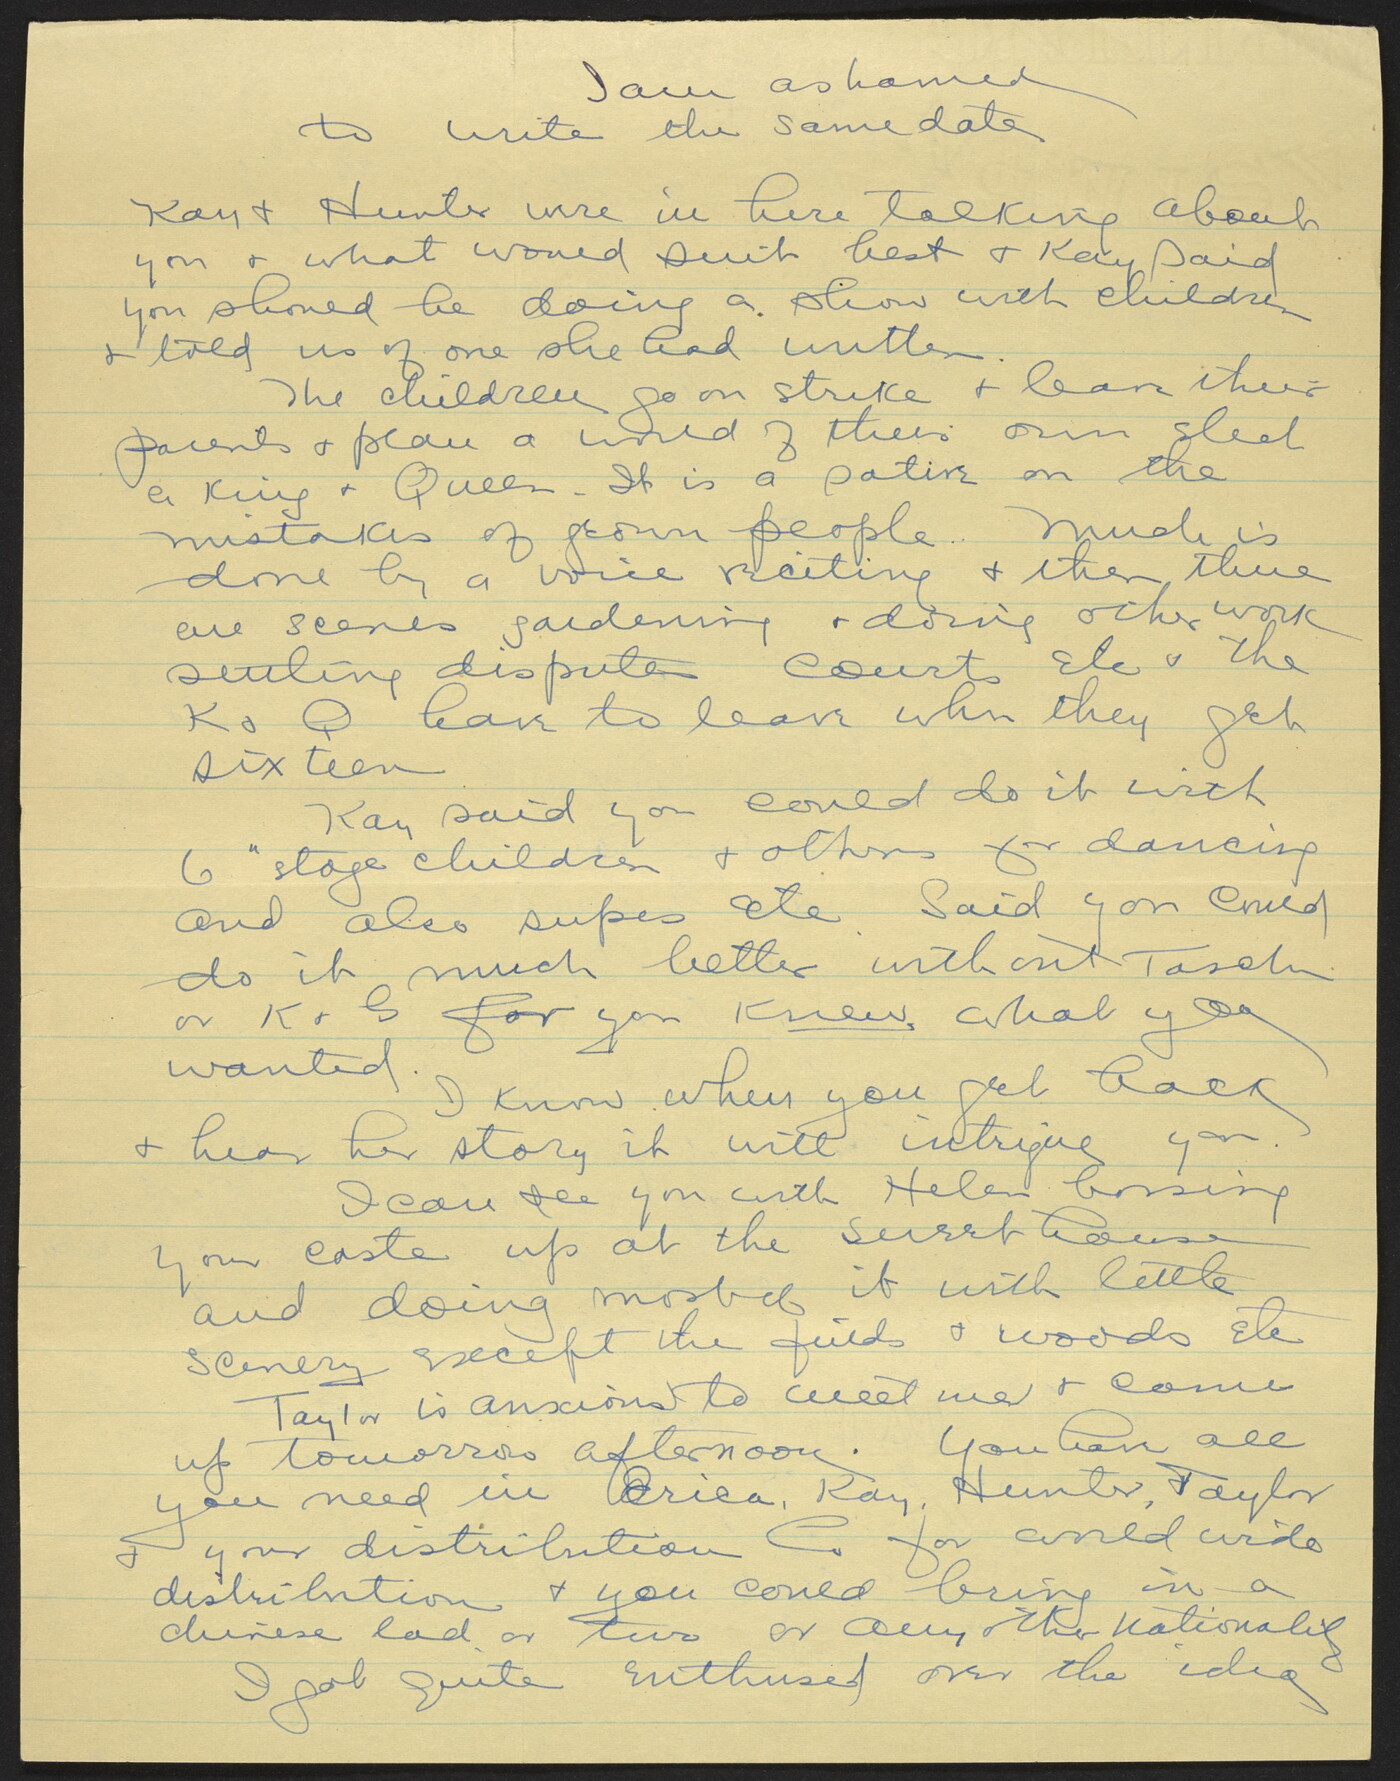 I am ashamed
to write the same date
Kay & Hunter were in here talking about
you & what would suit best & Kay said
you should be doing a show with children
& told us of one she had written.
The children go on strike & leave their
parents & plan a world of their own elect
a King & Queen. It is a satire on the
mistakes of grown people. Much is
done by a voice reciting & then there
are scenes gardening & doing other work
settling disputes courts etc & the
K & Q have to leave when they get
sixteen
Kay said you could do it with
6 "stage children & others for dancing
and also supes etc. Said you could
do it much better without Tasch
or K & G for you knew what you
wanted.
I know when you get back
& hear her story it will intrigue you.
I can see you with Helen bossing
your caste up at the sweet house
and doing most of it with little
scenery except the fields & woods etc
Taylor is anxious to meet me & come
up tomorrow afternoon. You have all
you need in Erica, Kay, Hunter, Taylor
& your distribution Co for world wide
distribution & you could bring in a
chinese lad or two or any other nationality
I got quite enthused over the idea